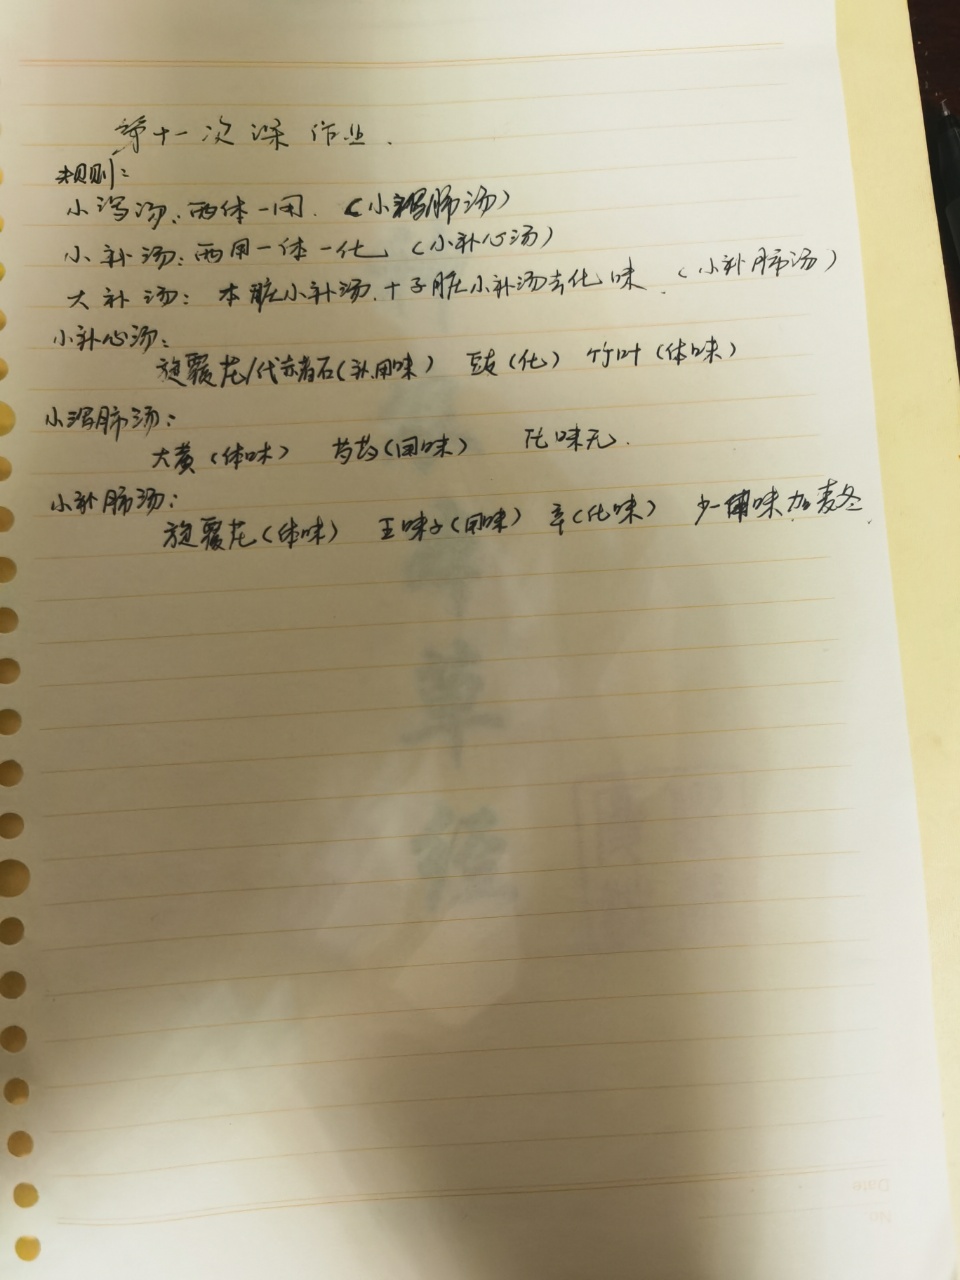 第十一次课作业.
规则:
小泻汤:两体一用.(小泻肺汤)
小补汤:两用一体一化(小补心汤)
大补汤:本脏小补汤.十子脏小补汤去化味.(小补肺汤)
小补心汤:
旋覆花/代赤者石(补用味) 豉(化) 竹叶(体味)
小泻肺汤:
大黄(体味) 芍药(用味) 化味无.
小补肺汤:
旋覆花(体味) 王味子(用味) 辛(化味) 少一味加麦冬.
草
经
Date